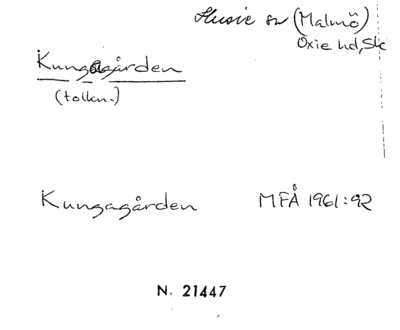 Husie sn (Malmö)
Oxie hd, Sk
Kungagården
(tolkn.)
Kungagården MFÅ 1961:92
N. 21447